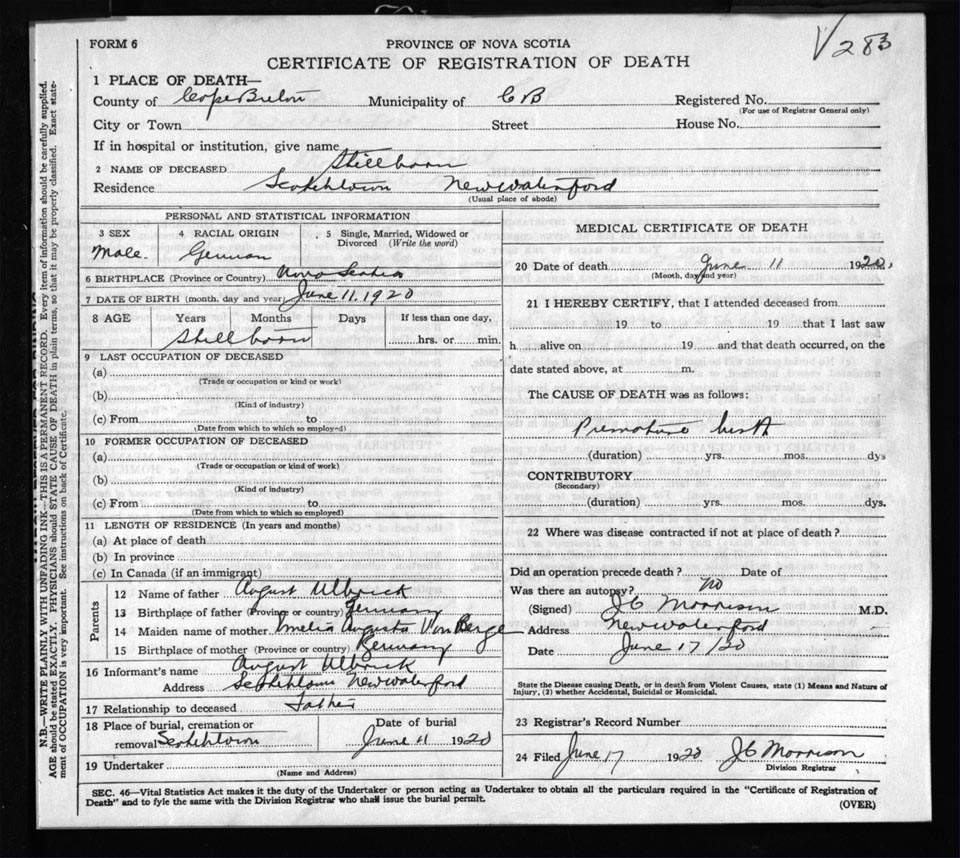 V283
FORM 6
PROVINCE OF NOVA SCOTIA
CERTIFICATE OF REGISTRATION OF DEATH
1 PLACE OF DEATH—
County of Cape Breton Municipality of C B Registered No.
(For use of Registrar General only)
City or Town Street House No.
If in hospital or institution, give name
2 NAME OF DECEASED Stillborn
Residence Scotchtown New Waterford
(Usual place of abode)
PERSONAL AND STATISTICAL INFORMATION
3 SEX 4 RACIAL ORIGIN 5 Single, Married, Widowed or Divorced (Write the word)
Male. German
6 BIRTHPLACE (Province or Country) Nova Scotia
7 DATE OF BIRTH (month, day and year) June 11, 1920
8 AGE Years Months Days If less than one day,
Stillborn hrs. or min.
9 LAST OCCUPATION OF DECEASED
(a)
(Trade or occupation or kind or work)
(b)
(Kind of industry)
(c) From to
(Date from which to which so employed)
10 FORMER OCCUPATION OF DECEASED
(a)
(Trade or occupation or kind of work)
(b)
(Kind of industry)
(c) From to
(Date from which to which so employed)
11 LENGTH OF RESIDENCE (In years and months)
(a) At place of death
(b) In province
(c) In Canada (if an immigrant)
Parents
12 Name of father August Ulbrick
13 Birthplace of father (Province or country) Germany
14 Maiden name of mother Emelia Augusta Von Berge
15 Birthplace of mother (Province or country) Germany
16 Informant's name August Ulbrick
Address Scotchtown New Waterford
17 Relationship to deceased Father
18 Place of burial, cremation or Date of burial
removal Scotchtown June 11 1920
19 Undertaker
(Name and Address)
MEDICAL CERTIFICATE OF DEATH
20 Date of death June 11 1920,
(Month, day and year)
21 I HEREBY CERTIFY, that I attended deceased from
19 to 19 that I last saw
h alive on 19 and that death occurred, on the
date stated above, at m.
The CAUSE OF DEATH was as follows:
Premature birth
(duration) yrs. mos. dys
CONTRIBUTORY
(Secondary)
(duration) yrs. mos. dys.
22 Where was disease contracted if not at place of death?
Did an operation precede death? Date of
Was there an autopsy? no
(Signed) J C Morrison M.D.
Address New Waterford
Date June 17/20
State the Disease causing Death, or in death from Violent Causes, state (1) Means and Nature of
Injury, (2) whether Accidental, Suicidal or Homicidal.
23 Registrar's Record Number
24 Filed June 17 1920 J C Morrison
Division Registrar
SEC. 46—Vital Statistics Act makes it the duty of the Undertaker or person acting as Undertaker to obtain all the particulars required in the "Certificate of Registration of
Death" and to fyle the same with the Division Registrar who shall issue the burial permit.
(OVER)
N.B.—WRITE PLAINLY WITH UNFADING INK—THIS IS A PERMANENT RECORD. Every item of information should be carefully supplied.
AGE should be stated EXACTLY. PHYSICIANS should STATE CAUSE OF DEATH in plain terms, so that it may be properly classified. Exact state-
ment of OCCUPATION is very important. See instructions on back of Certificate.